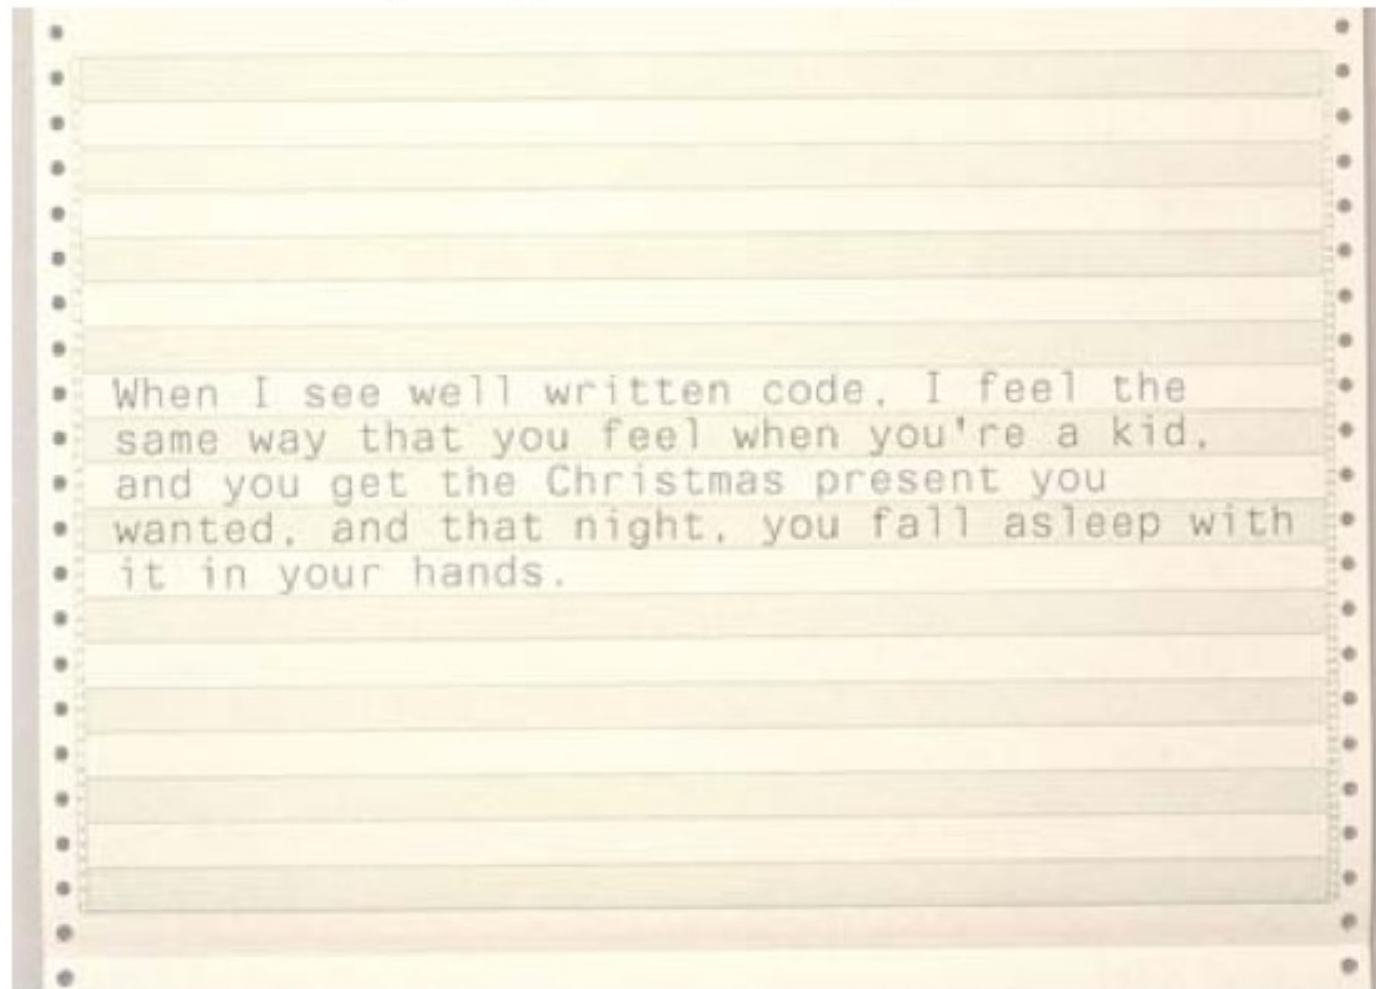 When I see well written code, I feel the
same way that you feel when you're a kid,
and you get the Christmas present you
wanted, and that night, you fall asleep with
it in your hands.